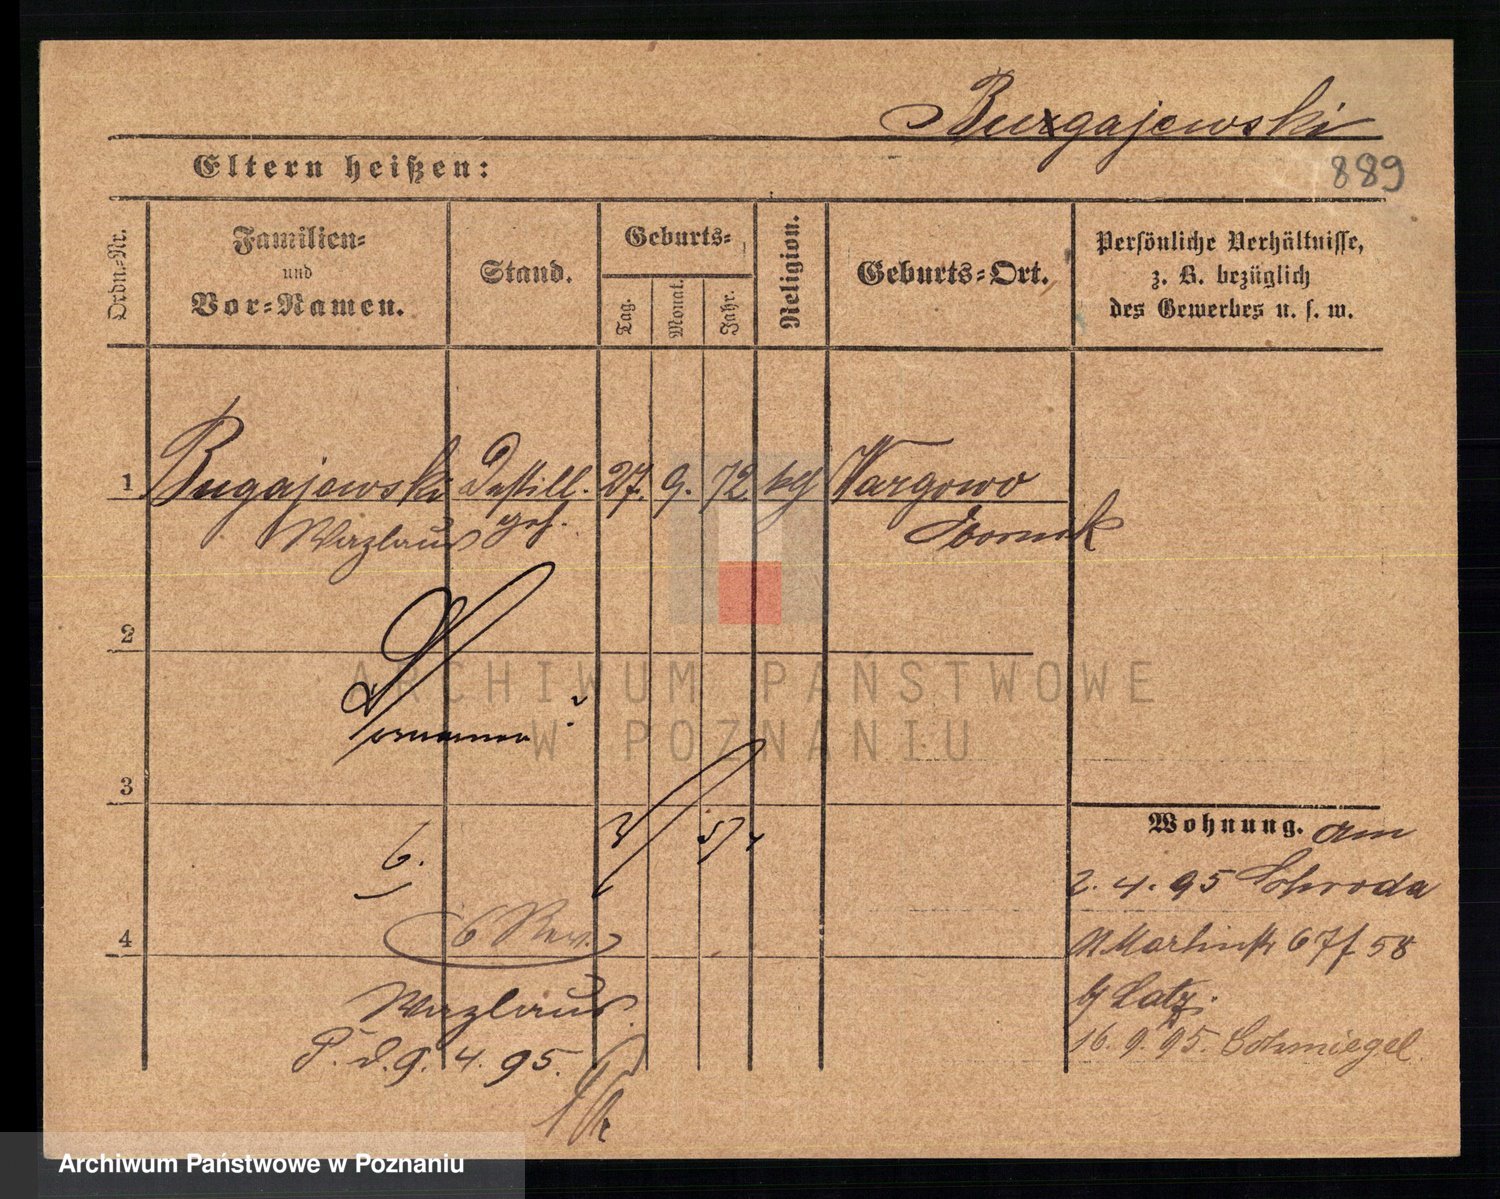 Bugajewski
Eltern heißen:
889
Ordn.-Nr.
Familien-
und
Vor-Namen.
Stand.
Geburts-
Tag.
Monat.
Jahr.
Religion.
Geburts-Ort.
Persönliche Verhältnisse,
z. B. bezüglich
des Gewerbes u. s. w.
1 Bugajewski Destill. 27. 9. 72 kg Wargowo
Wazlaus geh. Obornik
2
Vornamen?
3
Wohnung. am
6.
2. 4. 95 Schroda
4
St Martinstr 67 f 58
b/ Latz.
Wazlaus.
16. 9. 95. Schmiegel
P. d. 9. 4. 95.
ARCHIWUM PAŃSTWOWE
W POZNANIU
Archiwum Państwowe w Poznaniu